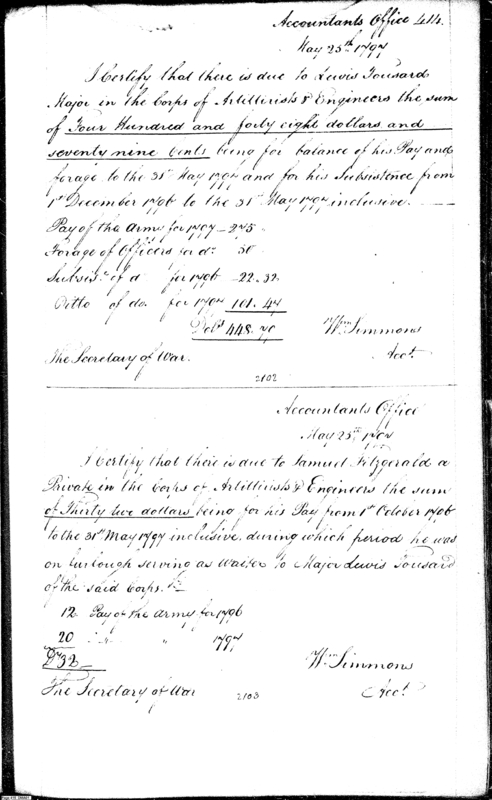 Accountants Office 414.
May 25th 1797
I Certify that there is due to Lewis Tousard
Major in the Corps of Artillerists & Engineers the sum
of Four Hundred and forty eight dollars and
seventy nine Cents being for balance of his Pay and
forage to the 31st May 1797 and for his Subsistence from
1st December 1796 to the 31st May 1797 inclusive.
Pay of the Army for 1797 - 275
Forage of Officers for do. 50
Subsis. of d for 1796 - 22.32
Ditto of do. for 1797 101.47
448.79
Wm Simmons
The Secretary of War. Acct.
2102
Accountants Office
May 25th 1797
I Certify that there is due to Samuel Fitzgerald a
Private in the Corps of Artillerists & Engineers the sum
of Thirty two dollars being for his Pay from 1st October 1796
to the 31st May 1797 inclusive, during which period he was
on furlough serving as Waiter to Major Lewis Tousard
of the said Corps.
12 Pay of the Army for 1796
20 " " 1797
Ds 32
Wm Simmons
The Secretary of War 2103 Acct.